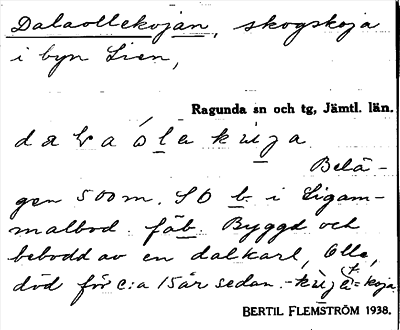 Dalaollekojan, skogskoja
i byn Lien,
Ragunda sn och tg, Jämtl. län.
Belä-
gen 500 m. SO b. i Ligam-
malbod. fäb. Byggd och
bebodd av en dalkarl, Olle,
död för c:a 15 år sedan. - = koja
BERTIL FLEMSTRÖM 1938.